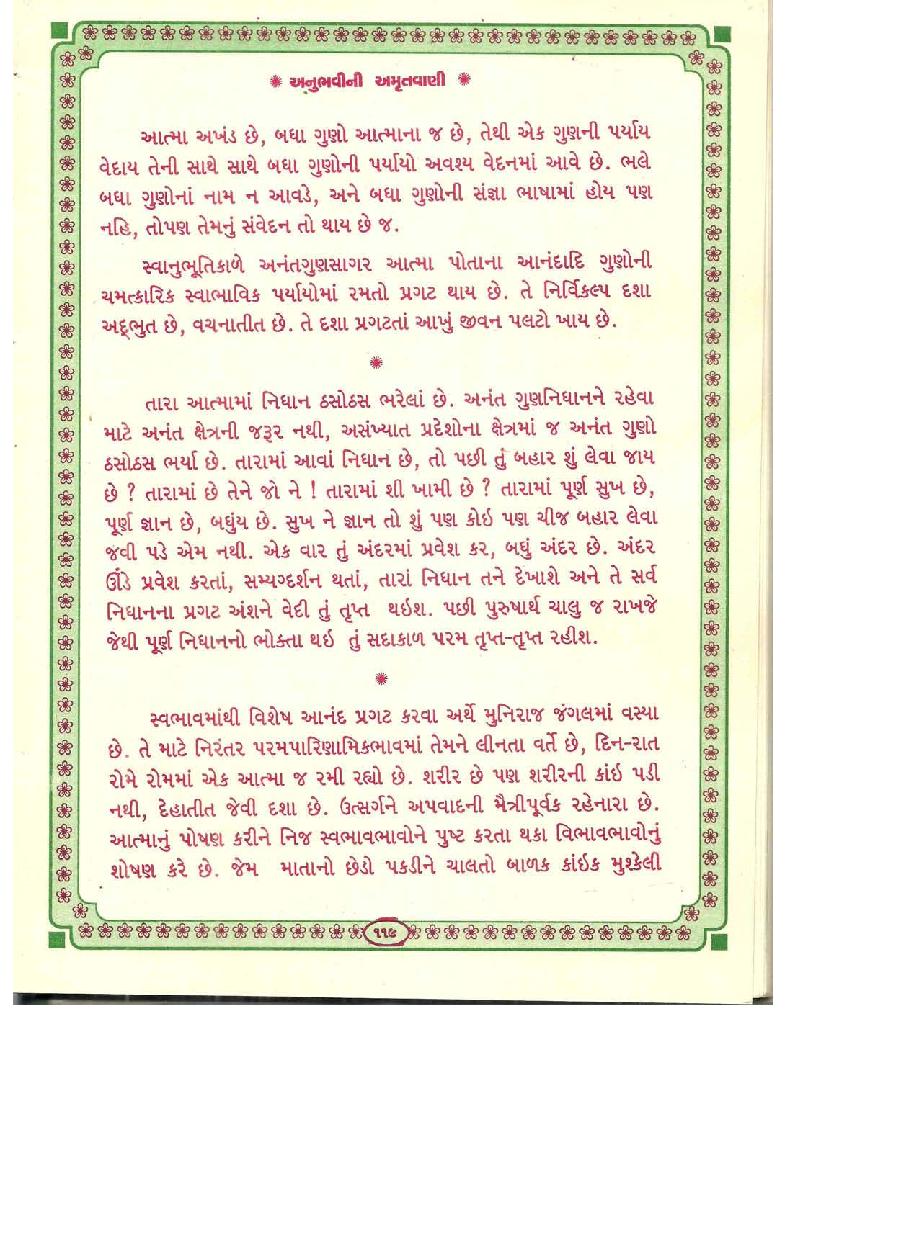 ✺ અનુભવીની અમૃતવાણી ✺
આત્મા અખંડ છે, બધા ગુણો આત્માના જ છે, તેથી એક ગુણની પર્યાય
વેદાય તેની સાથે સાથે બધા ગુણોની પર્યાયો અવશ્ય વેદનમાં આવે છે. ભલે
બધા ગુણોનાં નામ ન આવડે, અને બધા ગુણોની સંજ્ઞા ભાષામાં હોય પણ
નહિ, તોપણ તેમનું સંવેદન તો થાય છે જ.
સ્વાનુભૂતિકાળે અનંતગુણસાગર આત્મા પોતાના આનંદાદિ ગુણોની
ચમત્કારિક સ્વાભાવિક પર્યાયોમાં રમતો પ્રગટ થાય છે. તે નિર્વિકલ્પ દશા
અદ્ભુત છે, વચનાતીત છે. તે દશા પ્રગટતાં આખું જીવન પલટો ખાય છે.
✺
તારા આત્મામાં નિધાન ઠસોઠસ ભરેલાં છે. અનંત ગુણનિધાનને રહેવા
માટે અનંત ક્ષેત્રની જરૂર નથી, અસંખ્યાત પ્રદેશોના ક્ષેત્રમાં જ અનંત ગુણો
ઠસોઠસ ભર્યા છે. તારામાં આવાં નિધાન છે, તો પછી તું બહાર શું લેવા જાય
છે ? તારામાં છે તેને જો ને ! તારામાં શી ખામી છે ? તારામાં પૂર્ણ સુખ છે,
પૂર્ણ જ્ઞાન છે, બધુંય છે. સુખ ને જ્ઞાન તો શું પણ કોઇ પણ ચીજ બહાર લેવા
જવી પડે એમ નથી. એક વાર તું અંદરમાં પ્રવેશ કર, બધું અંદર છે. અંદર
ઊંડે પ્રવેશ કરતાં, સમ્યગ્દર્શન થતાં, તારાં નિધાન તને દેખાશે અને તે સર્વ
નિધાનના પ્રગટ અંશને વેદી તું તૃપ્ત થઇશ. પછી પુરુષાર્થ ચાલુ જ રાખજે
જેથી પૂર્ણ નિધાનનો ભોક્તા થઇ તું સદાકાળ પરમ તૃપ્ત-તૃપ્ત રહીશ.
✺
સ્વભાવમાંથી વિશેષ આનંદ પ્રગટ કરવા અર્થે મુનિરાજ જંગલમાં વસ્યા
છે. તે માટે નિરંતર પરમપારિણામિકભાવમાં તેમને લીનતા વર્તે છે, દિન-રાત
રોમે રોમમાં એક આત્મા જ રમી રહ્યો છે. શરીર છે પણ શરીરની કાંઇ પડી
નથી, દેહાતીત જેવી દશા છે. ઉત્સર્ગને અપવાદની મૈત્રીપૂર્વક રહેનારા છે.
આત્માનું પોષણ કરીને નિજ સ્વભાવભાવોને પુષ્ટ કરતા થકા વિભાવભાવોનું
શોષણ કરે છે. જેમ માતાનો છેડો પકડીને ચાલતો બાળક કાંઇક મુશ્કેલી
૧૧૭